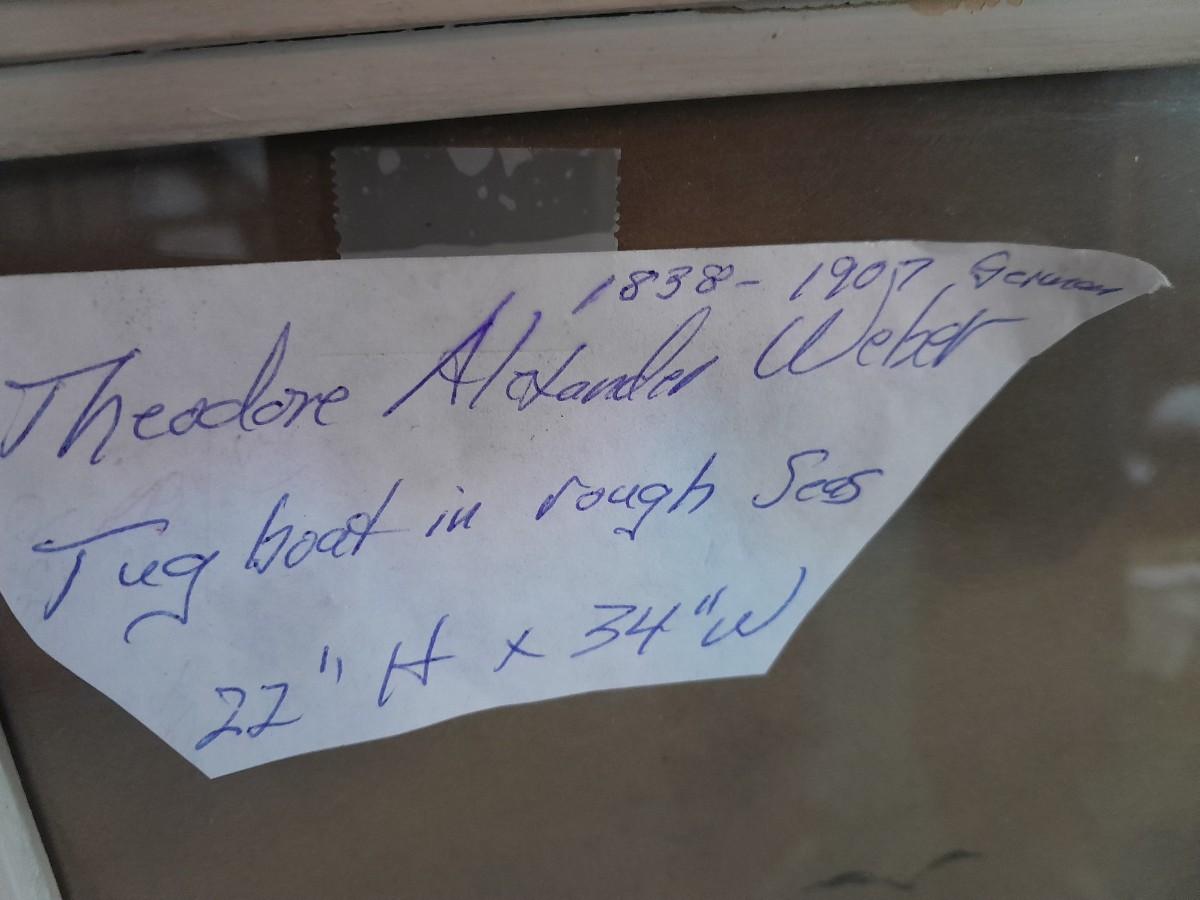 1838- 1907 German
Theodore Alexander Weber
Tug boat in rough Seas
22" H x 34" W